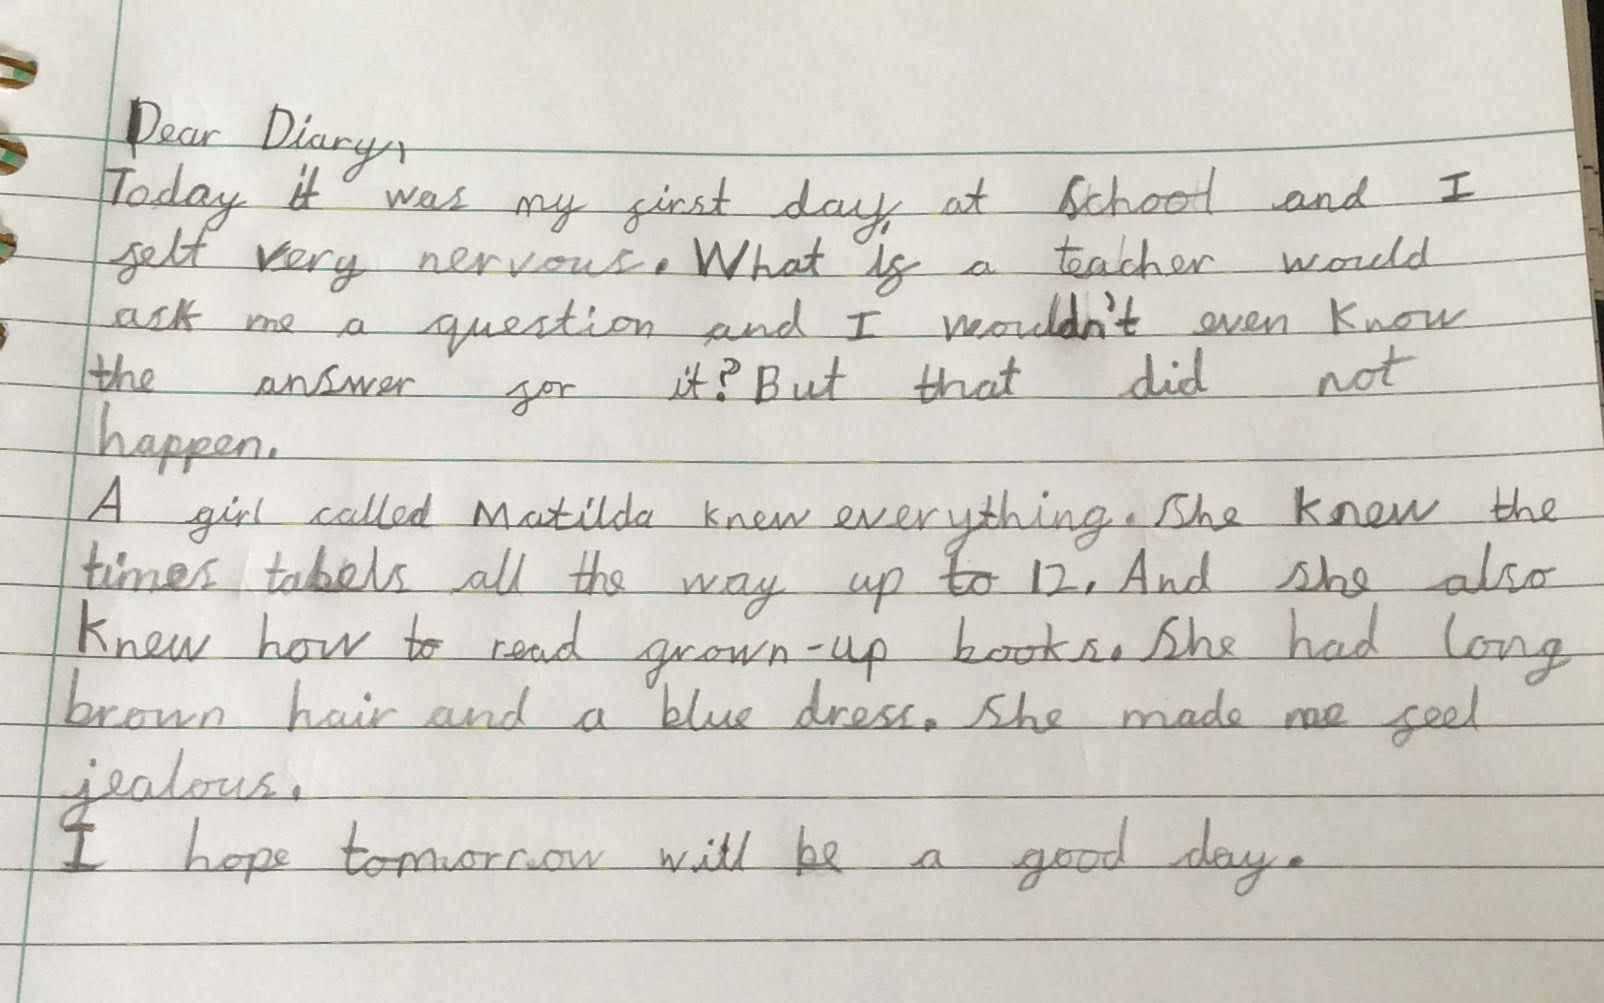 Dear Diary,
Today it was my first day, at School and I
felt very nervous. What is a teacher would
ask me a question and I wouldn't even know
the answer for it? But that did not
happen.
A girl called Matilda knew everything. She knew the
times tabels all the way up to 12. And she also
knew how to read grown-up books. She had long
brown hair and a blue dress. She made me feel
jealous.
I hope tomorrow will be a good day.